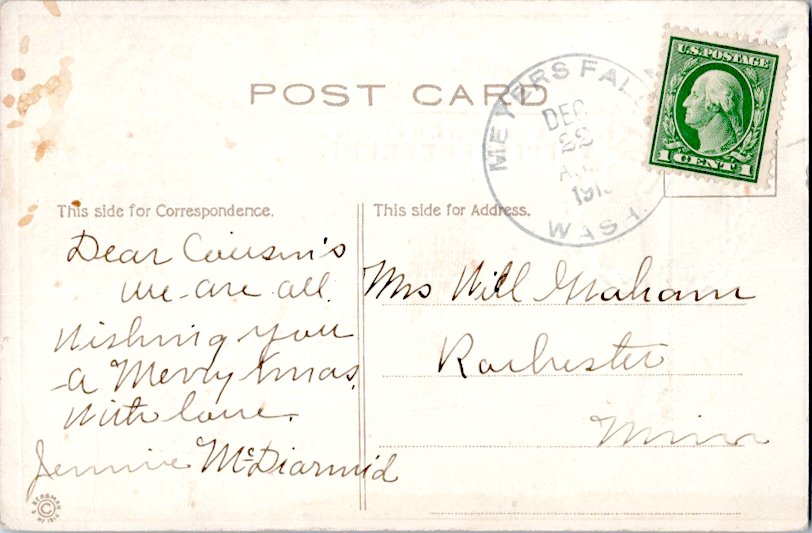 POST CARD
MEYERS FALLS
DEC
22
A.M.
191
WASH.
U.S. POSTAGE
1 CENT 1
This side for Correspondence.
Dear Cousin's
we are all
wishing you
a Merry Xmas.
With love.
Jennie McDiarmid
This side for Address.
Mrs Will Graham
Rochester
Minn
S. BERGMAN
©
NY 1912